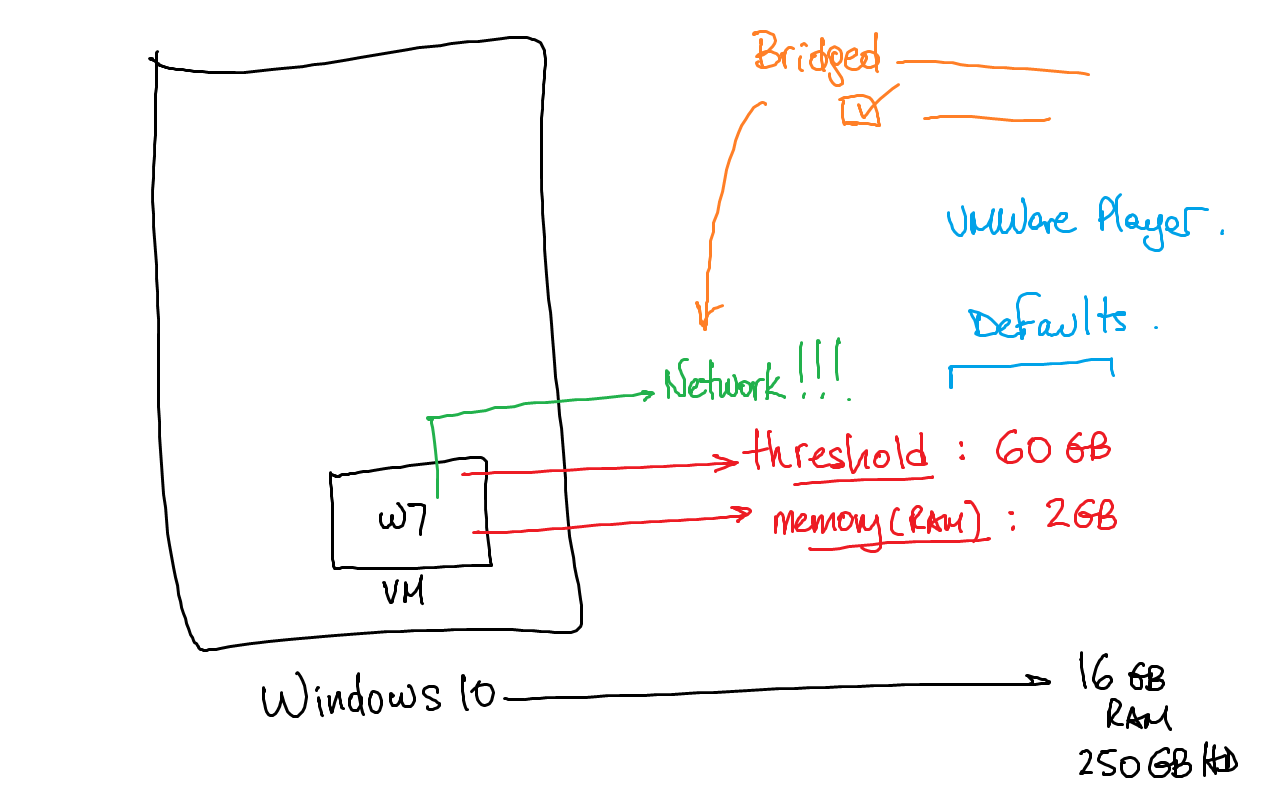 Bridged
VMWare Player.
Defaults.
Network!!!
threshold : 60 GB
memory(RAM) : 2GB
W7
VM
Windows 10
16 GB
RAM
250GB HD